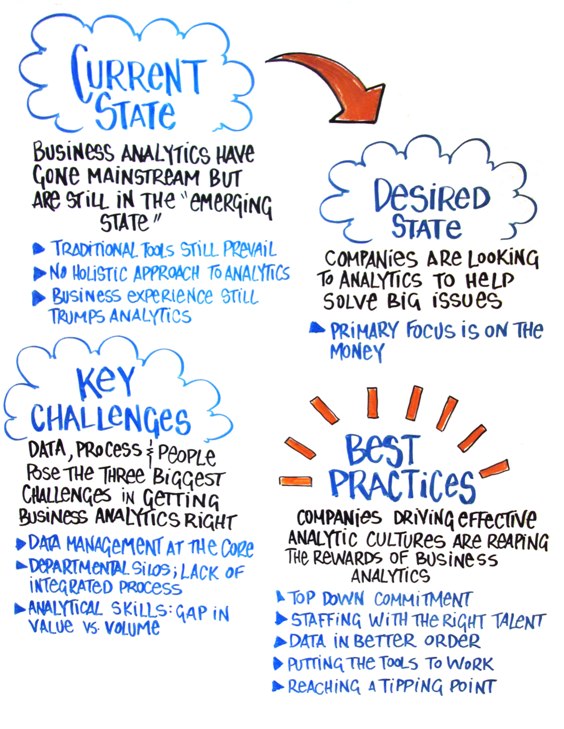 CURRENT
STATE
BUSINESS ANALYTICS HAVE
GONE MAINSTREAM BUT
ARE STILL IN THE "EMERGING
STATE"
TRADITIONAL TOOLS STILL PREVAIL
NO HOLISTIC APPROACH TO ANALYTICS
BUSINESS EXPERIENCE STILL
TRUMPS ANALYTICS
DESIRED
STATE
COMPANIES ARE LOOKING
TO ANALYTICS TO HELP
SOLVE BIG ISSUES
PRIMARY FOCUS IS ON THE
MONEY
KEY
CHALLENGES
DATA, PROCESS & PEOPLE
POSE THE THREE BIGGEST
CHALLENGES IN GETTING
BUSINESS ANALYTICS RIGHT
DATA MANAGEMENT AT THE CORE
DEPARTMENTAL SILOS; LACK OF
INTEGRATED PROCESS
ANALYTICAL SKILLS: GAP IN
VALUE VS. VOLUME
BEST
PRACTICES
COMPANIES DRIVING EFFECTIVE
ANALYTIC CULTURES ARE REAPING
THE REWARDS OF BUSINESS
ANALYTICS
TOP DOWN COMMITMENT
STAFFING WITH THE RIGHT TALENT
DATA IN BETTER ORDER
PUTTING THE TOOLS TO WORK
REACHING A TIPPING POINT